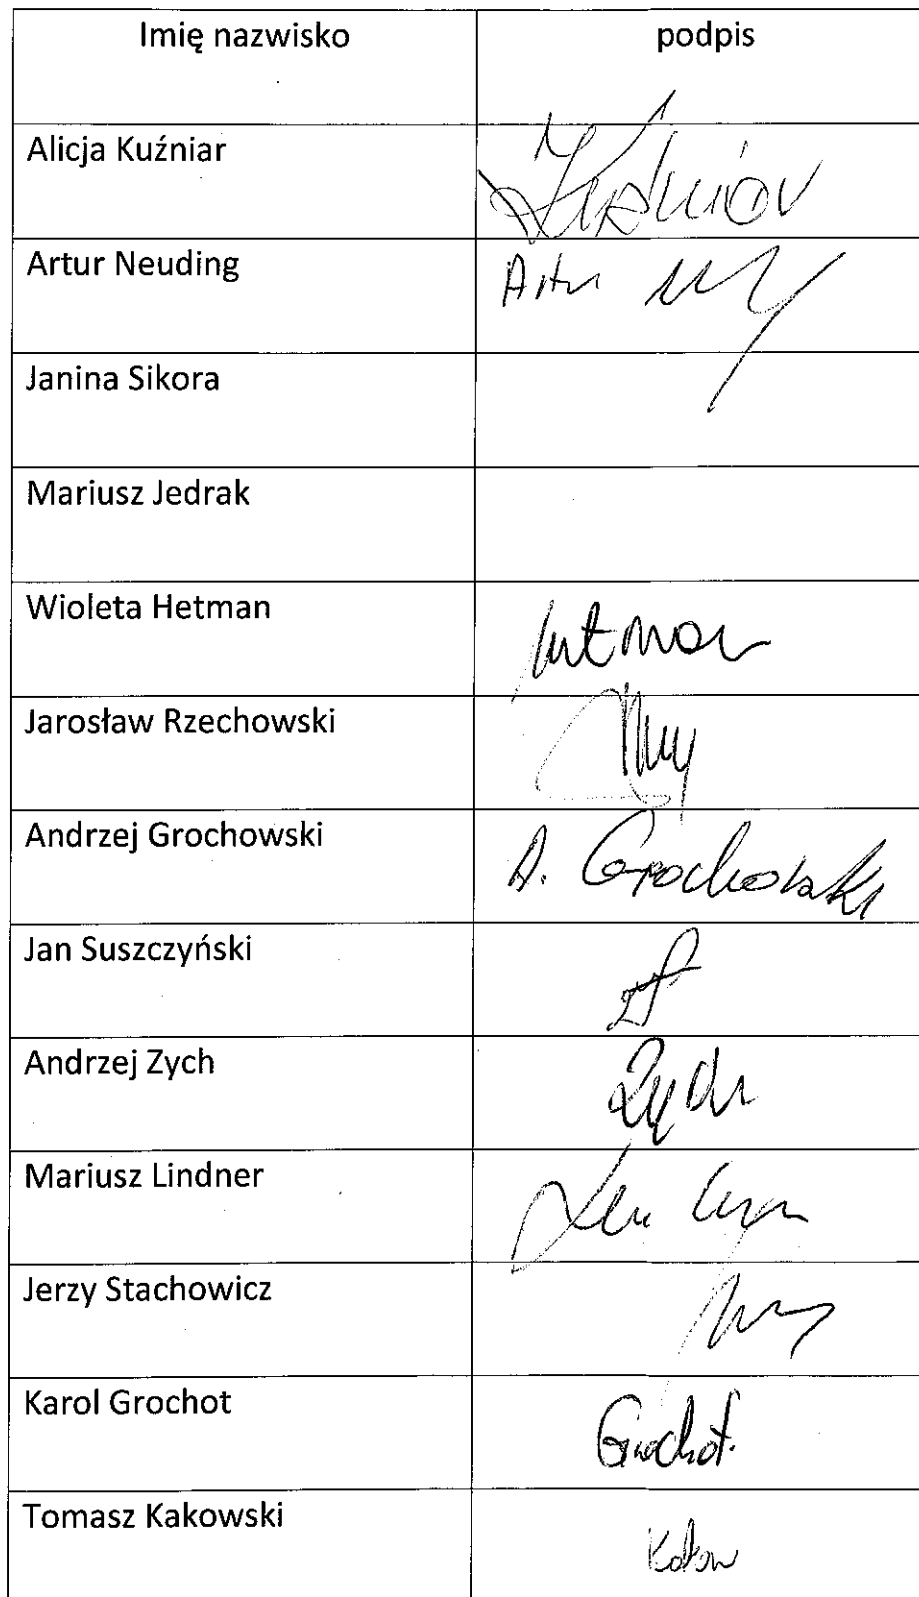 Imię nazwisko podpis
Alicja Kuźniar Kuźniar
Artur Neuding Artur
Janina Sikora
Mariusz Jedrak
Wioleta Hetman Hetman
Jarosław Rzechowski
Andrzej Grochowski A. Grochowski
Jan Suszczyński
Andrzej Zych Zych
Mariusz Lindner
Jerzy Stachowicz
Karol Grochot Grochot.
Tomasz Kakowski